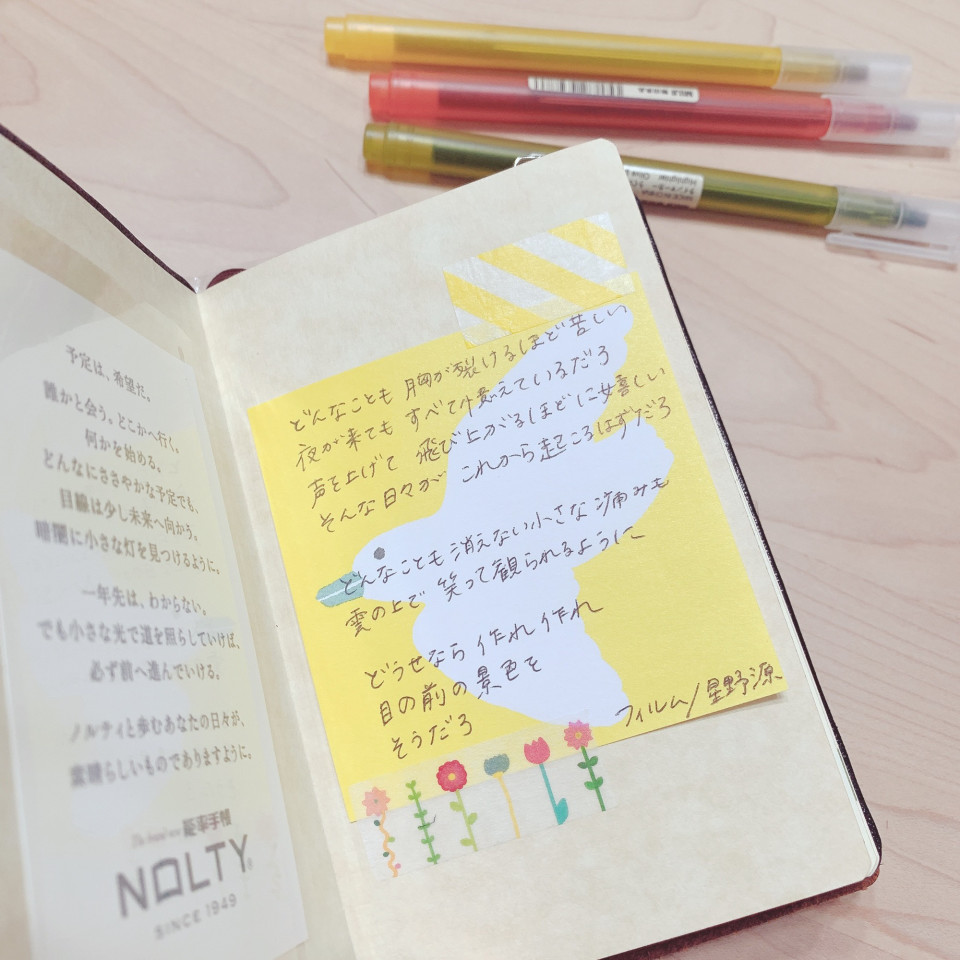 予定は、希望だ。
誰かと会う。どこかへ行く。
何かを始める。
どんなにささやかな予定でも、
目線は少し未来へ向かう。
暗闇に小さな灯を見つけるように。
一年先は、わからない。
でも小さな光で道を照らしていけば、
必ず前へ進んでいける。
ノルティと歩むあなたの日々が、
素晴らしいものでありますように。
能率手帳
NOLTY®
SINCE 1949
どんなことも 胸が裂けるほど苦しい
夜が来ても すべて憶えているだろ
声を上げて 飛び上がるほどに嬉しい
そんな日々が これから起こるはずだろ
どんなことも消えない小さな痛みも
雲の上で 笑って観られるように
どうせなら 作れ 作れ
目の前の景色を
そうだろ
フィルム/星野源
Highlighter